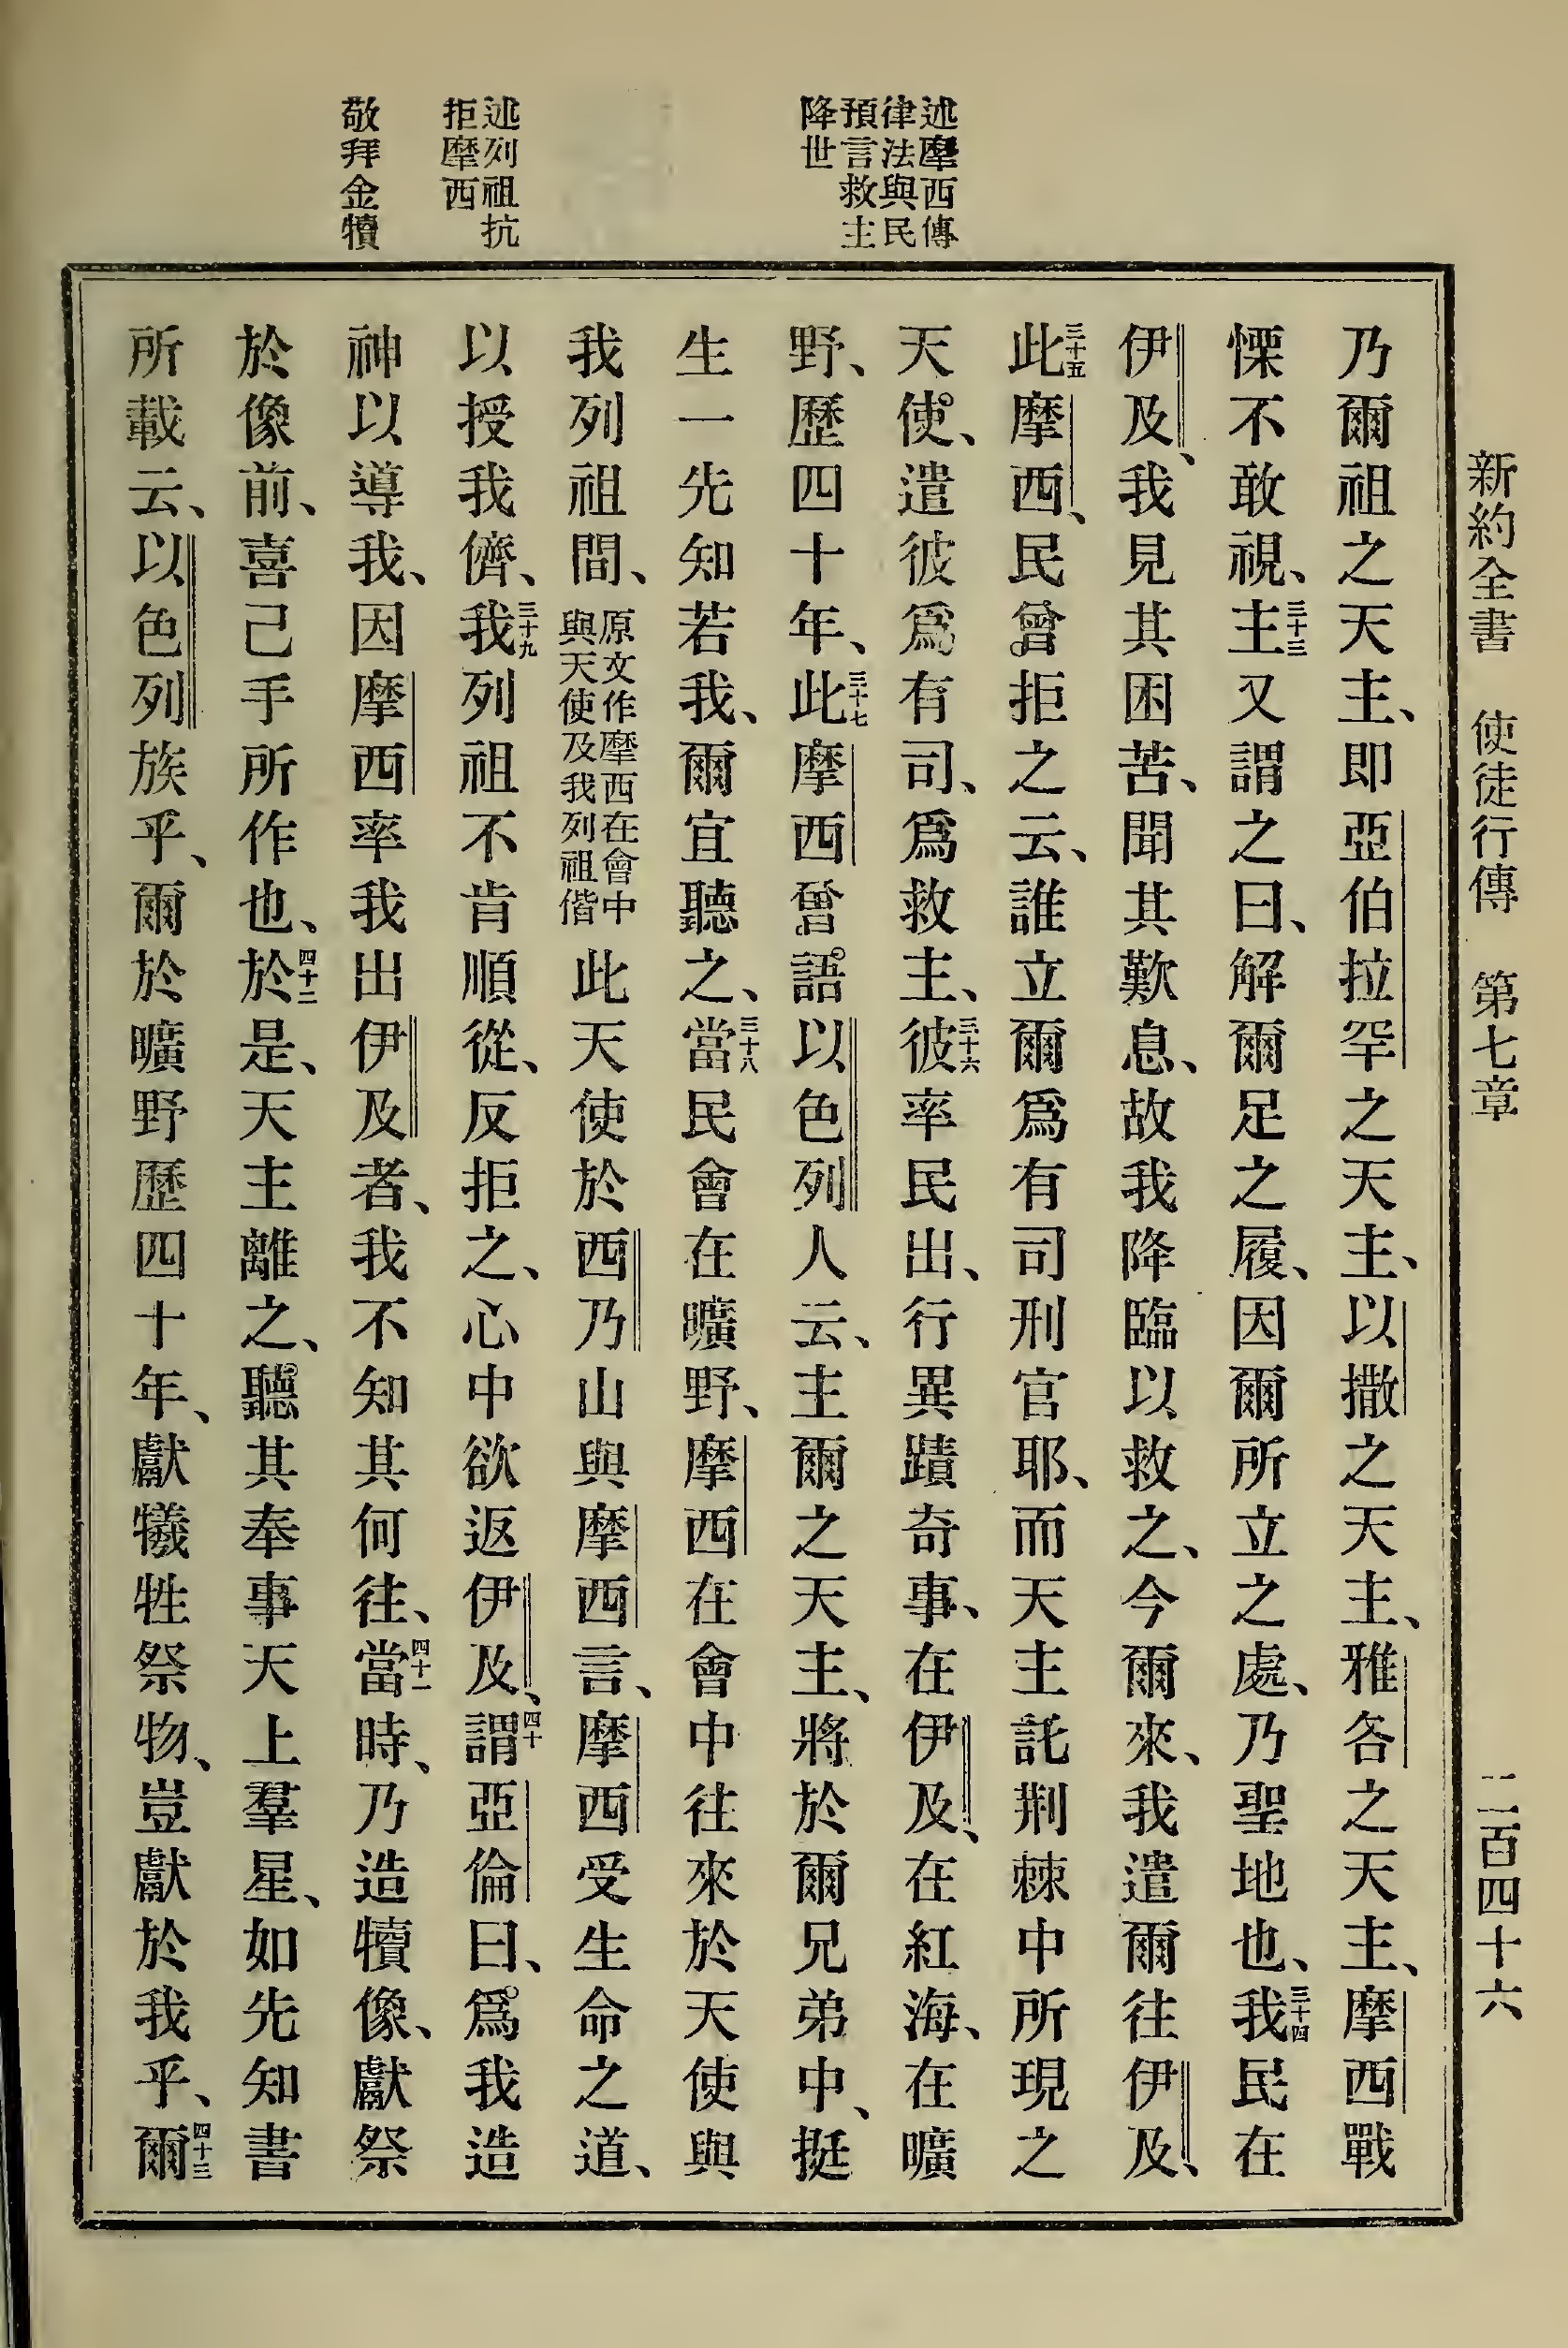 新約全書　使徒行傳　第七章　二百四十六
述摩西傳
律法與民
預言救主
降世
述列祖抗
拒摩西
敬拜金犢
乃爾祖之天主、即亞伯拉罕之天主、以撒之天主、雅各之天主、摩西戰
慄不敢視、三十三主又謂之曰、解爾足之履、因爾所立之處、乃聖地也、三十四我民在
伊及、我見其困苦、聞其歎息、故我降臨以救之、今爾來、我遣爾往伊及、
三十五此摩西、民曾拒之云、誰立爾爲有司刑官耶、而天主託荆棘中所現之
天使、遣彼爲有司、爲救主、三十六彼率民出、行異蹟奇事、在伊及、在紅海、在曠
野、歷四十年、三十七此摩西曾語以色列人云、主爾之天主、將於爾兄弟中、挺
生一先知若我、爾宜聽之、三十八當民會在曠野、摩西在會中往來於天使與
我列祖間、原文作摩西在會中與天使及我列祖偕此天使於西乃山與摩西言、摩西受生命之道、
以授我儕、三十九我列祖不肯順從、反拒之、心中欲返伊及、四十謂亞倫曰、爲我造
神以導我、因摩西率我出伊及者、我不知其何往、四十一當時、乃造犢像、獻祭
於像前、喜己手所作也、四十二於是、天主離之、聽其奉事天上羣星、如先知書
所載云、以色列族乎、爾於曠野歷四十年、獻犧牲祭物、豈獻於我乎、四十三爾